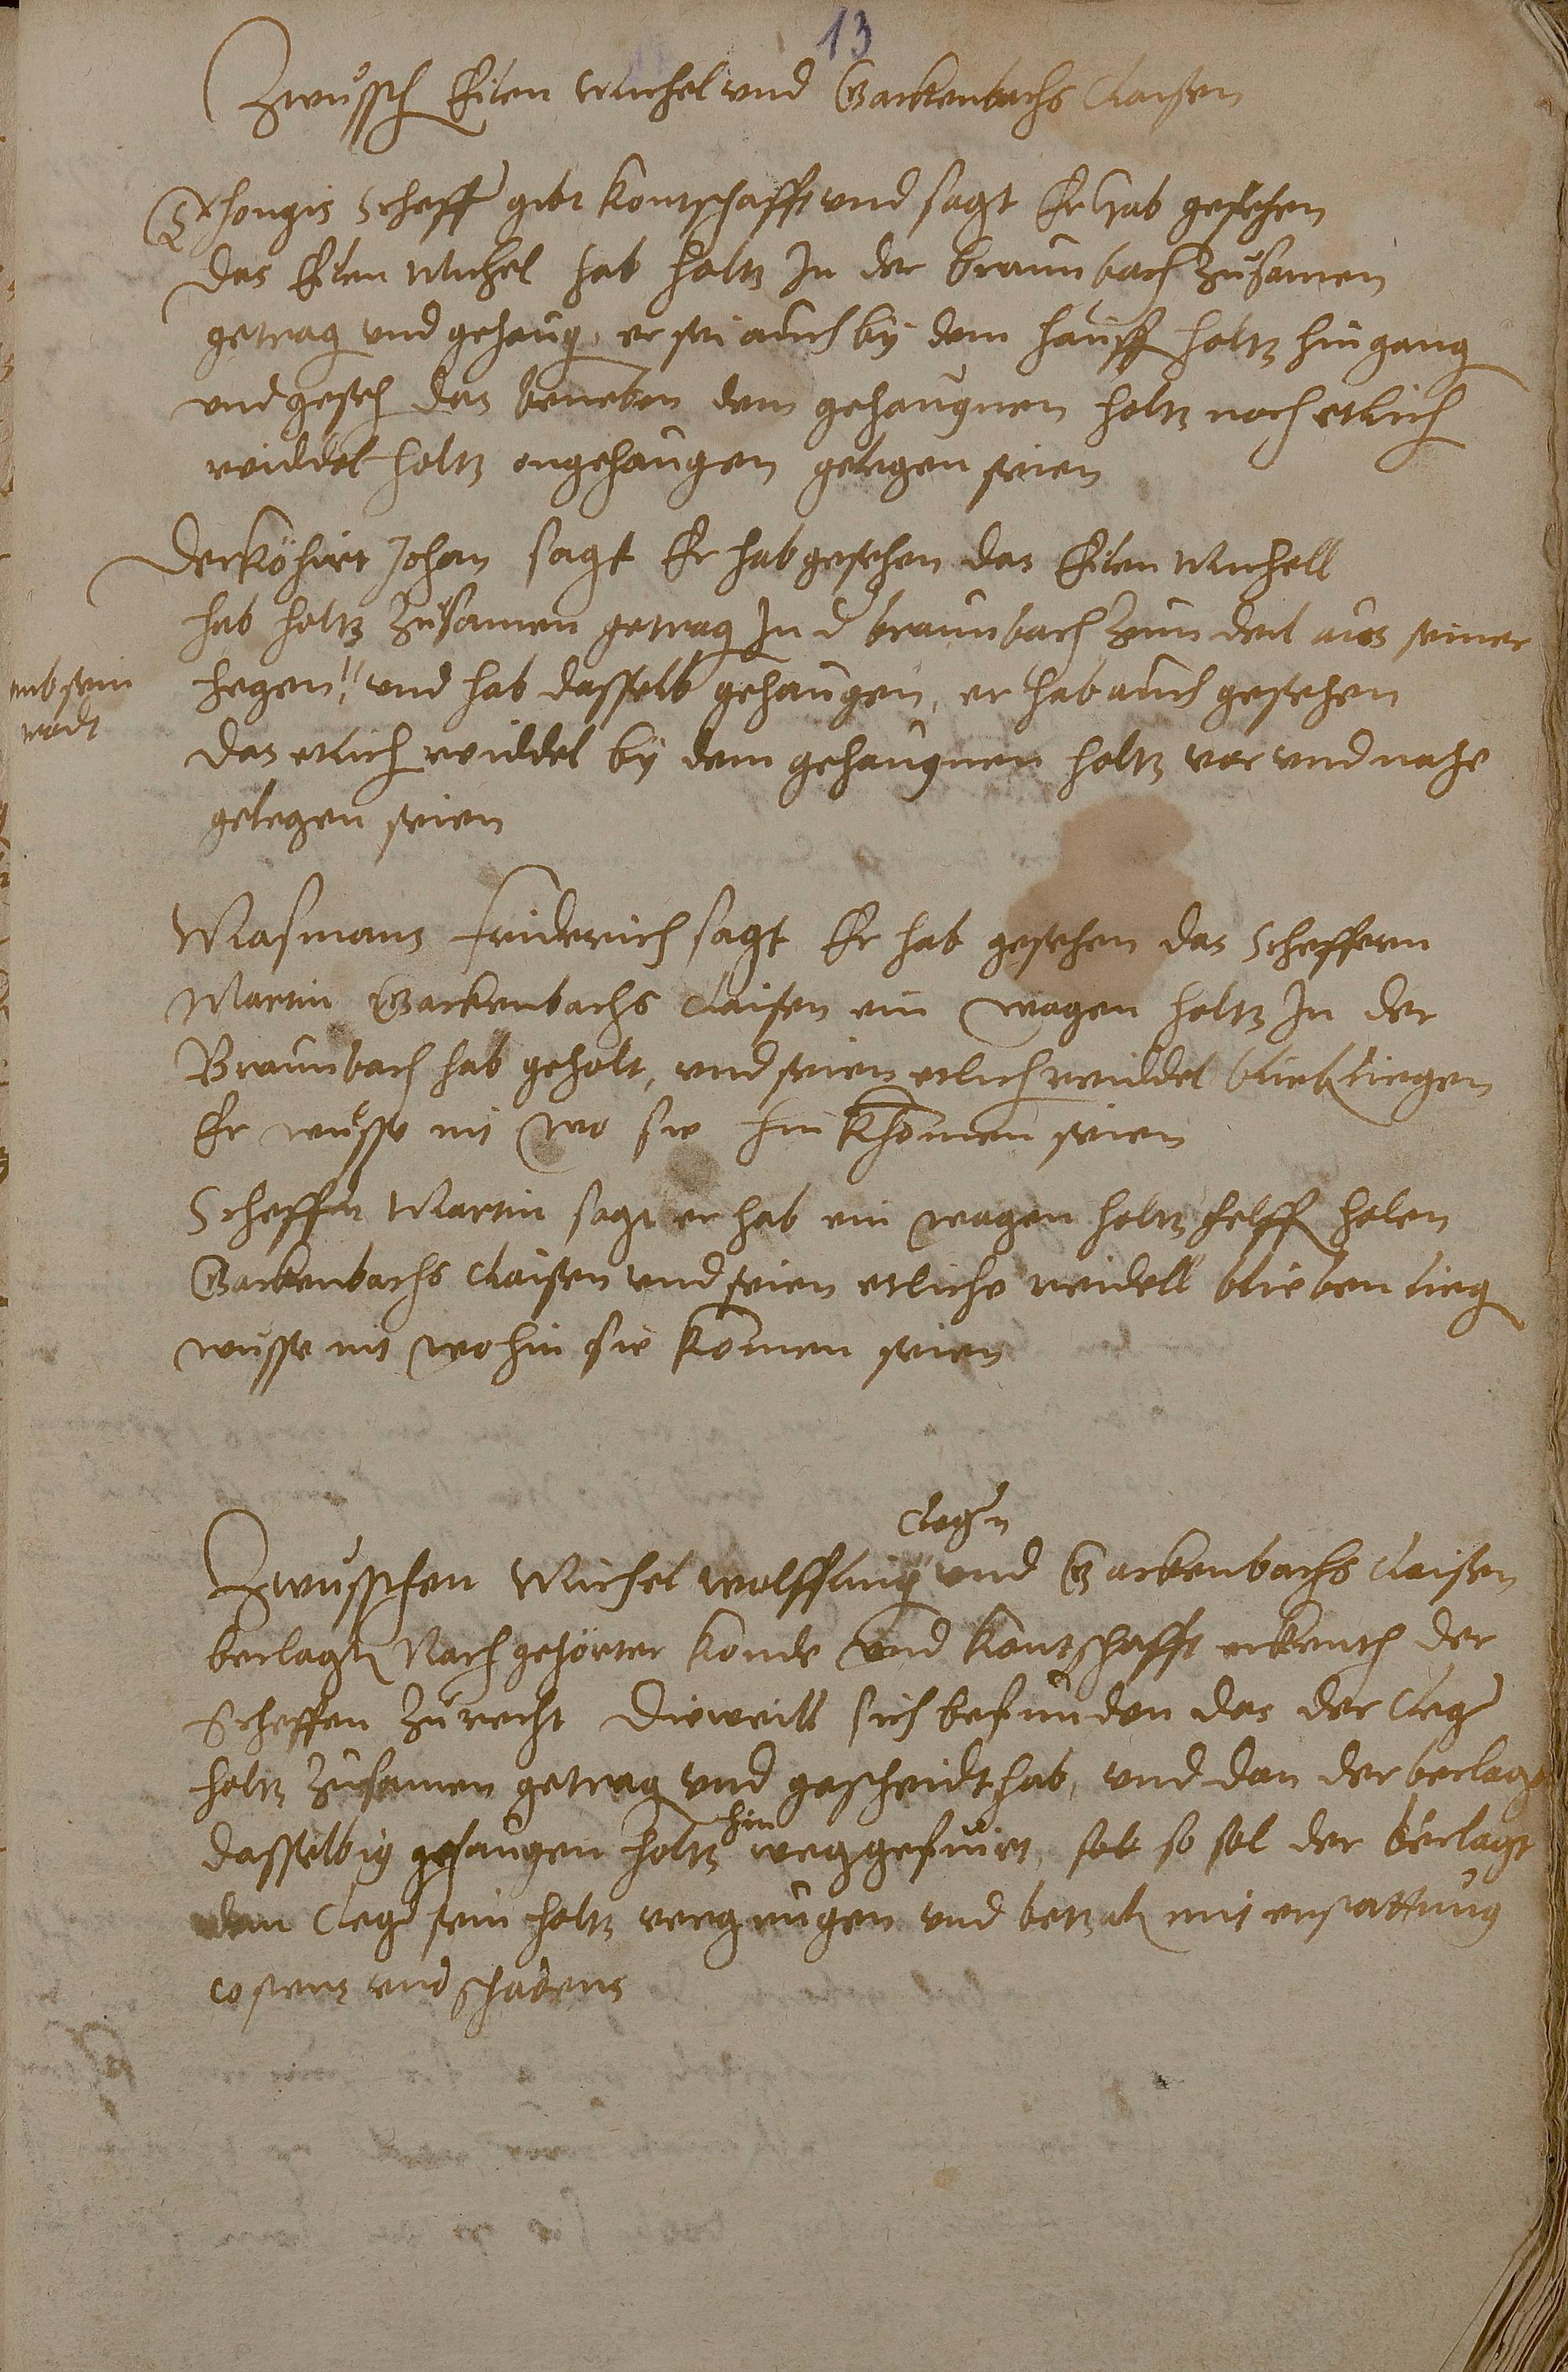 13
Zwüssch Eilen Michel und Gackenbachs Claisen
Thongis Scheff gibt kontschafft und sagt Er hab gesehen
das Eilen Michel hab holtz In der braunbach zusamen
getrag und gehaug, er sei auch by dem hauff holtz hin gang
und geseh das beneben dem gehaugnen holtz noch etlich
reiddel holtz ongehaugen gelegen seien
Der köhirt Johan sagt Er hab gesehen das Eilen Michell
hab holtz zusamen getrag In d braunbach zum deil aus seiner
hegen und hab dasselb gehaugen, er hab auch gesehen
umb sein
das etlich reiddel by dem gehaugnen holtz vor und nahe
gelegen seien
Masmans Friderich sagt Er hab gesehen das Scheffern
Martin Gackenbachs Claisen ein wagen holtz In der
Braunbach hab geholt, und seien etlich reiddel blieb liegen
Er wüsse nit wo sie hin khomen seien
Scheffern Martin sagt er hab ein wagen holtz helff holen
Gackenbachs Claisen und seien etliche reidell blieben lieg
wusse nit wo hin sie komen seien
Clegern
Zwüsschen Michel wolffling und Gackenbachs Claisen
beclagt Nach gehörter konde und kontschafft erkenth der
Scheffen zu recht Dieweill sich befunden das der Cleg
holtz zusamen getrag und gescheidt hab, und dan der beclagt
hin
dasselbig gehaugen holtz weg gefuirt, sol so sol der beclagt
dem Cleg sein holtz vergnugen und betzal mit erstattung
costens und schadens